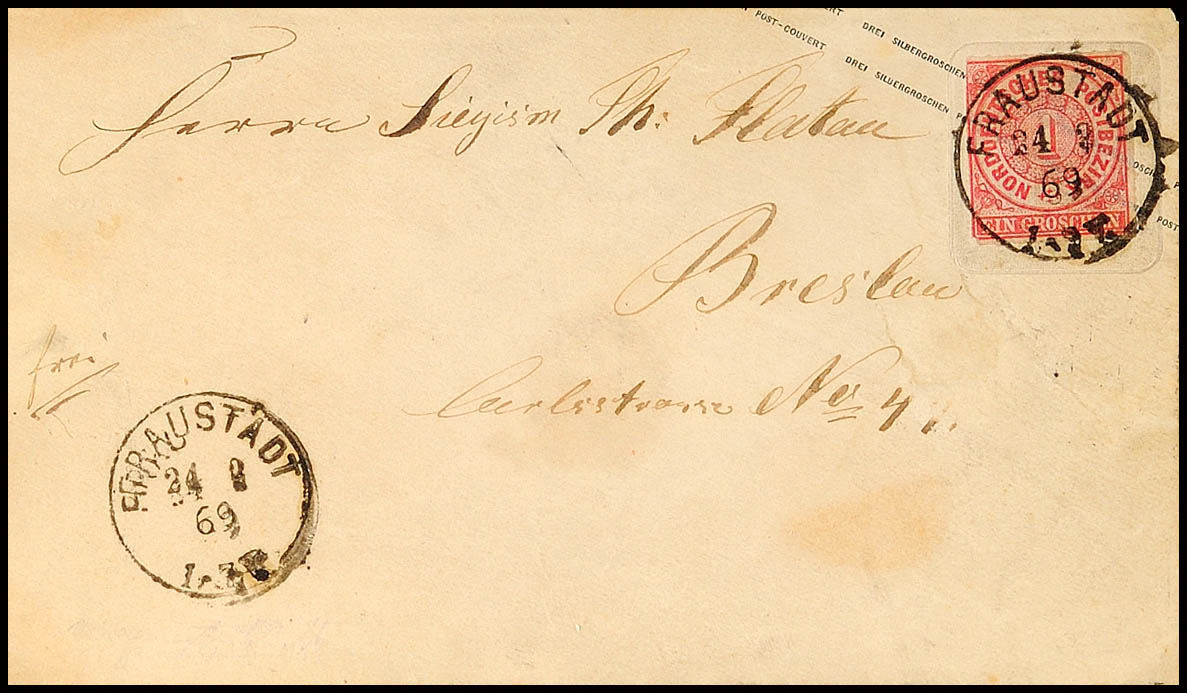 POST-COUVERT DREI SILBERGROSCHEN
POST-COUVERT DREI SILBERGROSCHEN
NORDDEUTSCHER POSTBEZIRK
1
EIN GROSCHEN
FRAUSTADT
24 3
69
Herrn Th: Flatau
Breslau
Carlsstrasse No
frei
FRAUSTADT
24
69